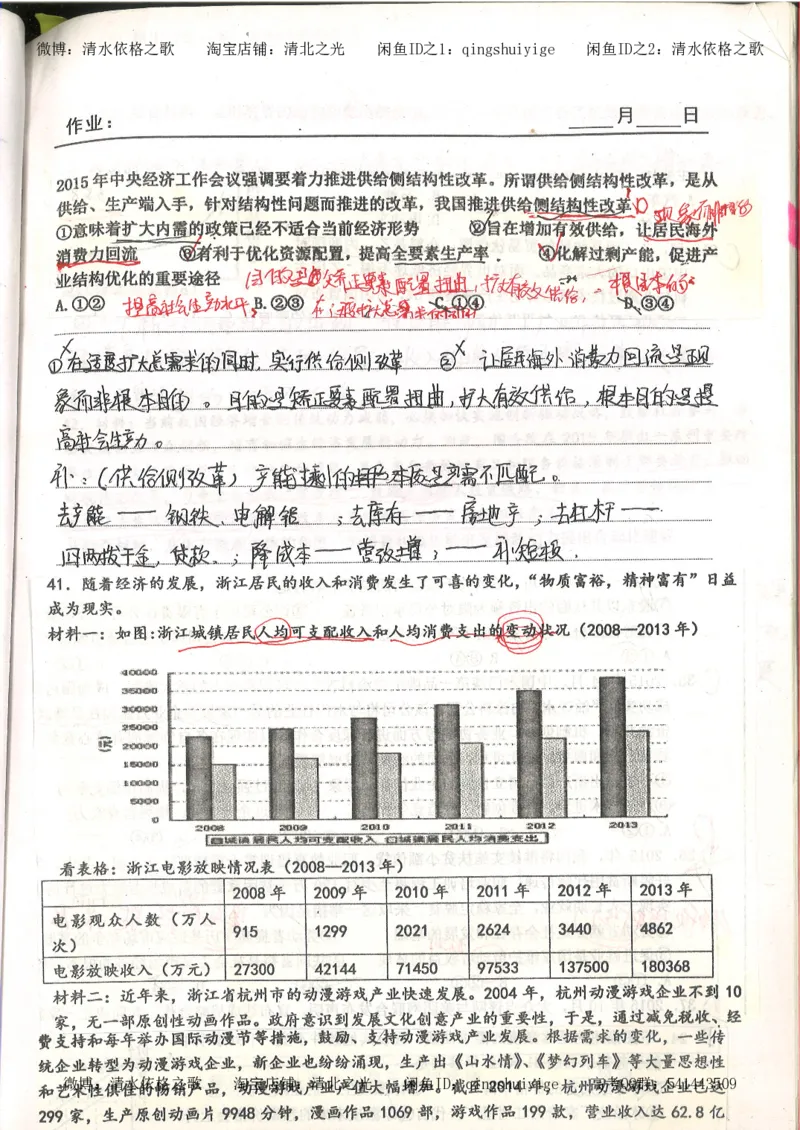 微博：清水依格之歌 淘宝店铺：清北之光 闲鱼ID之1：qingshuiyige 闲鱼ID之2：清水依格之歌
作业： 月 日
2015年中央经济工作会议强调要着力推进供给侧结构性改革。所谓供给侧结构性改革，是从
供给、生产端入手，针对结构性问题而推进的改革，我国推进供给侧结构性改革
①意味着扩大内需的政策已经不适合当前经济形势 ②旨在增加有效供给，让居民海外
消费力回流 ③有利于优化资源配置，提高全要素生产率 ④化解过剩产能，促进产
业结构优化的重要途径
目的是矫正要素配置扭曲，扩大有效供给，根本目的
A. ①② B. ②③ C. ①④ D. ③④
提高社会生产力水平
①在适度扩大总需求的同时，实行供给侧改革 ② 让居民海外消费力回流是现
象而非根本目的。目的是矫正要素配置扭曲，扩大有效供给，根本目的是提
高社会生产力。
补：（供给侧改革）产能过剩的本质是供需不匹配。
去产能——钢铁、电解铝；去库存——房地产；去杠杆——
四两拨千金，贷款；降成本——营改增；——补短板．
41．随着经济的发展，浙江居民的收入和消费发生了可喜的变化，“物质富裕，精神富有”日益
成为现实。
材料一：如图:浙江城镇居民人均可支配收入和人均消费支出的变动状况（2008—2013年）
40000
35000
30000
25000
20000
15000
10000
5000
0
（元）
2008 2009 2010 2011 2012 2013
城镇居民人均可支配收入 城镇居民人均消费支出
看表格：浙江电影放映情况表（2008—2013年）
2008年 2009年 2010年 2011年 2012年 2013年
电影观众人数（万人次） 915 1299 2021 2624 3440 4862
电影放映收入（万元） 27300 42144 71450 97533 137500 180368
材料二：近年来，浙江省杭州市的动漫游戏产业快速发展。2004年，杭州动漫游戏企业不到10
家，无一部原创性动画作品。政府意识到发展文化创意产业的重要性，于是，通过减免税收、经
费支持和每年举办国际动漫节等措施，鼓励、支持动漫游戏产业发展。根据需求的变化，一些传
统企业转型为动漫游戏企业，新企业也纷纷涌现，生产出《山水情》、《梦幻列车》等大量思想性
和艺术性俱佳的畅销产品，动漫游戏产业产值大幅增加。截至2014年，杭州动漫游戏企业已达
微博：清水依格之歌 淘宝店铺：清北之光 闲鱼ID：qingshuiyige 高考QQ群：541443509
299家，生产原创动画片9948分钟，漫画作品1069部，游戏作品199款，营业收入达62.8亿